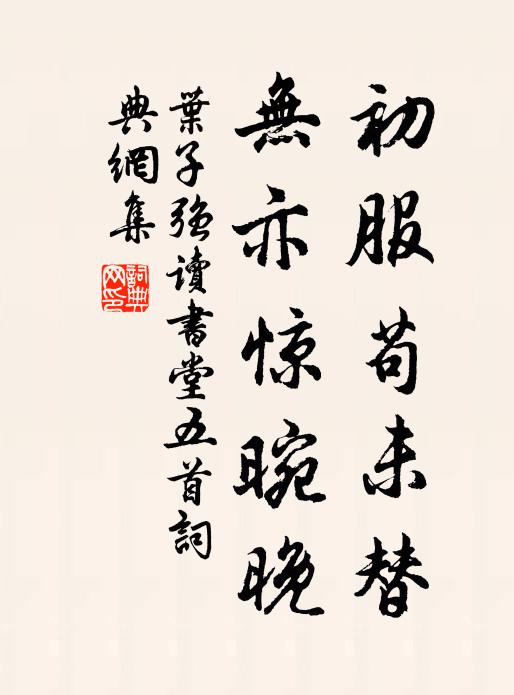 初服苟未替
無亦惊晼晚
葉子强讀書堂五首詞
典網集
詞典网印